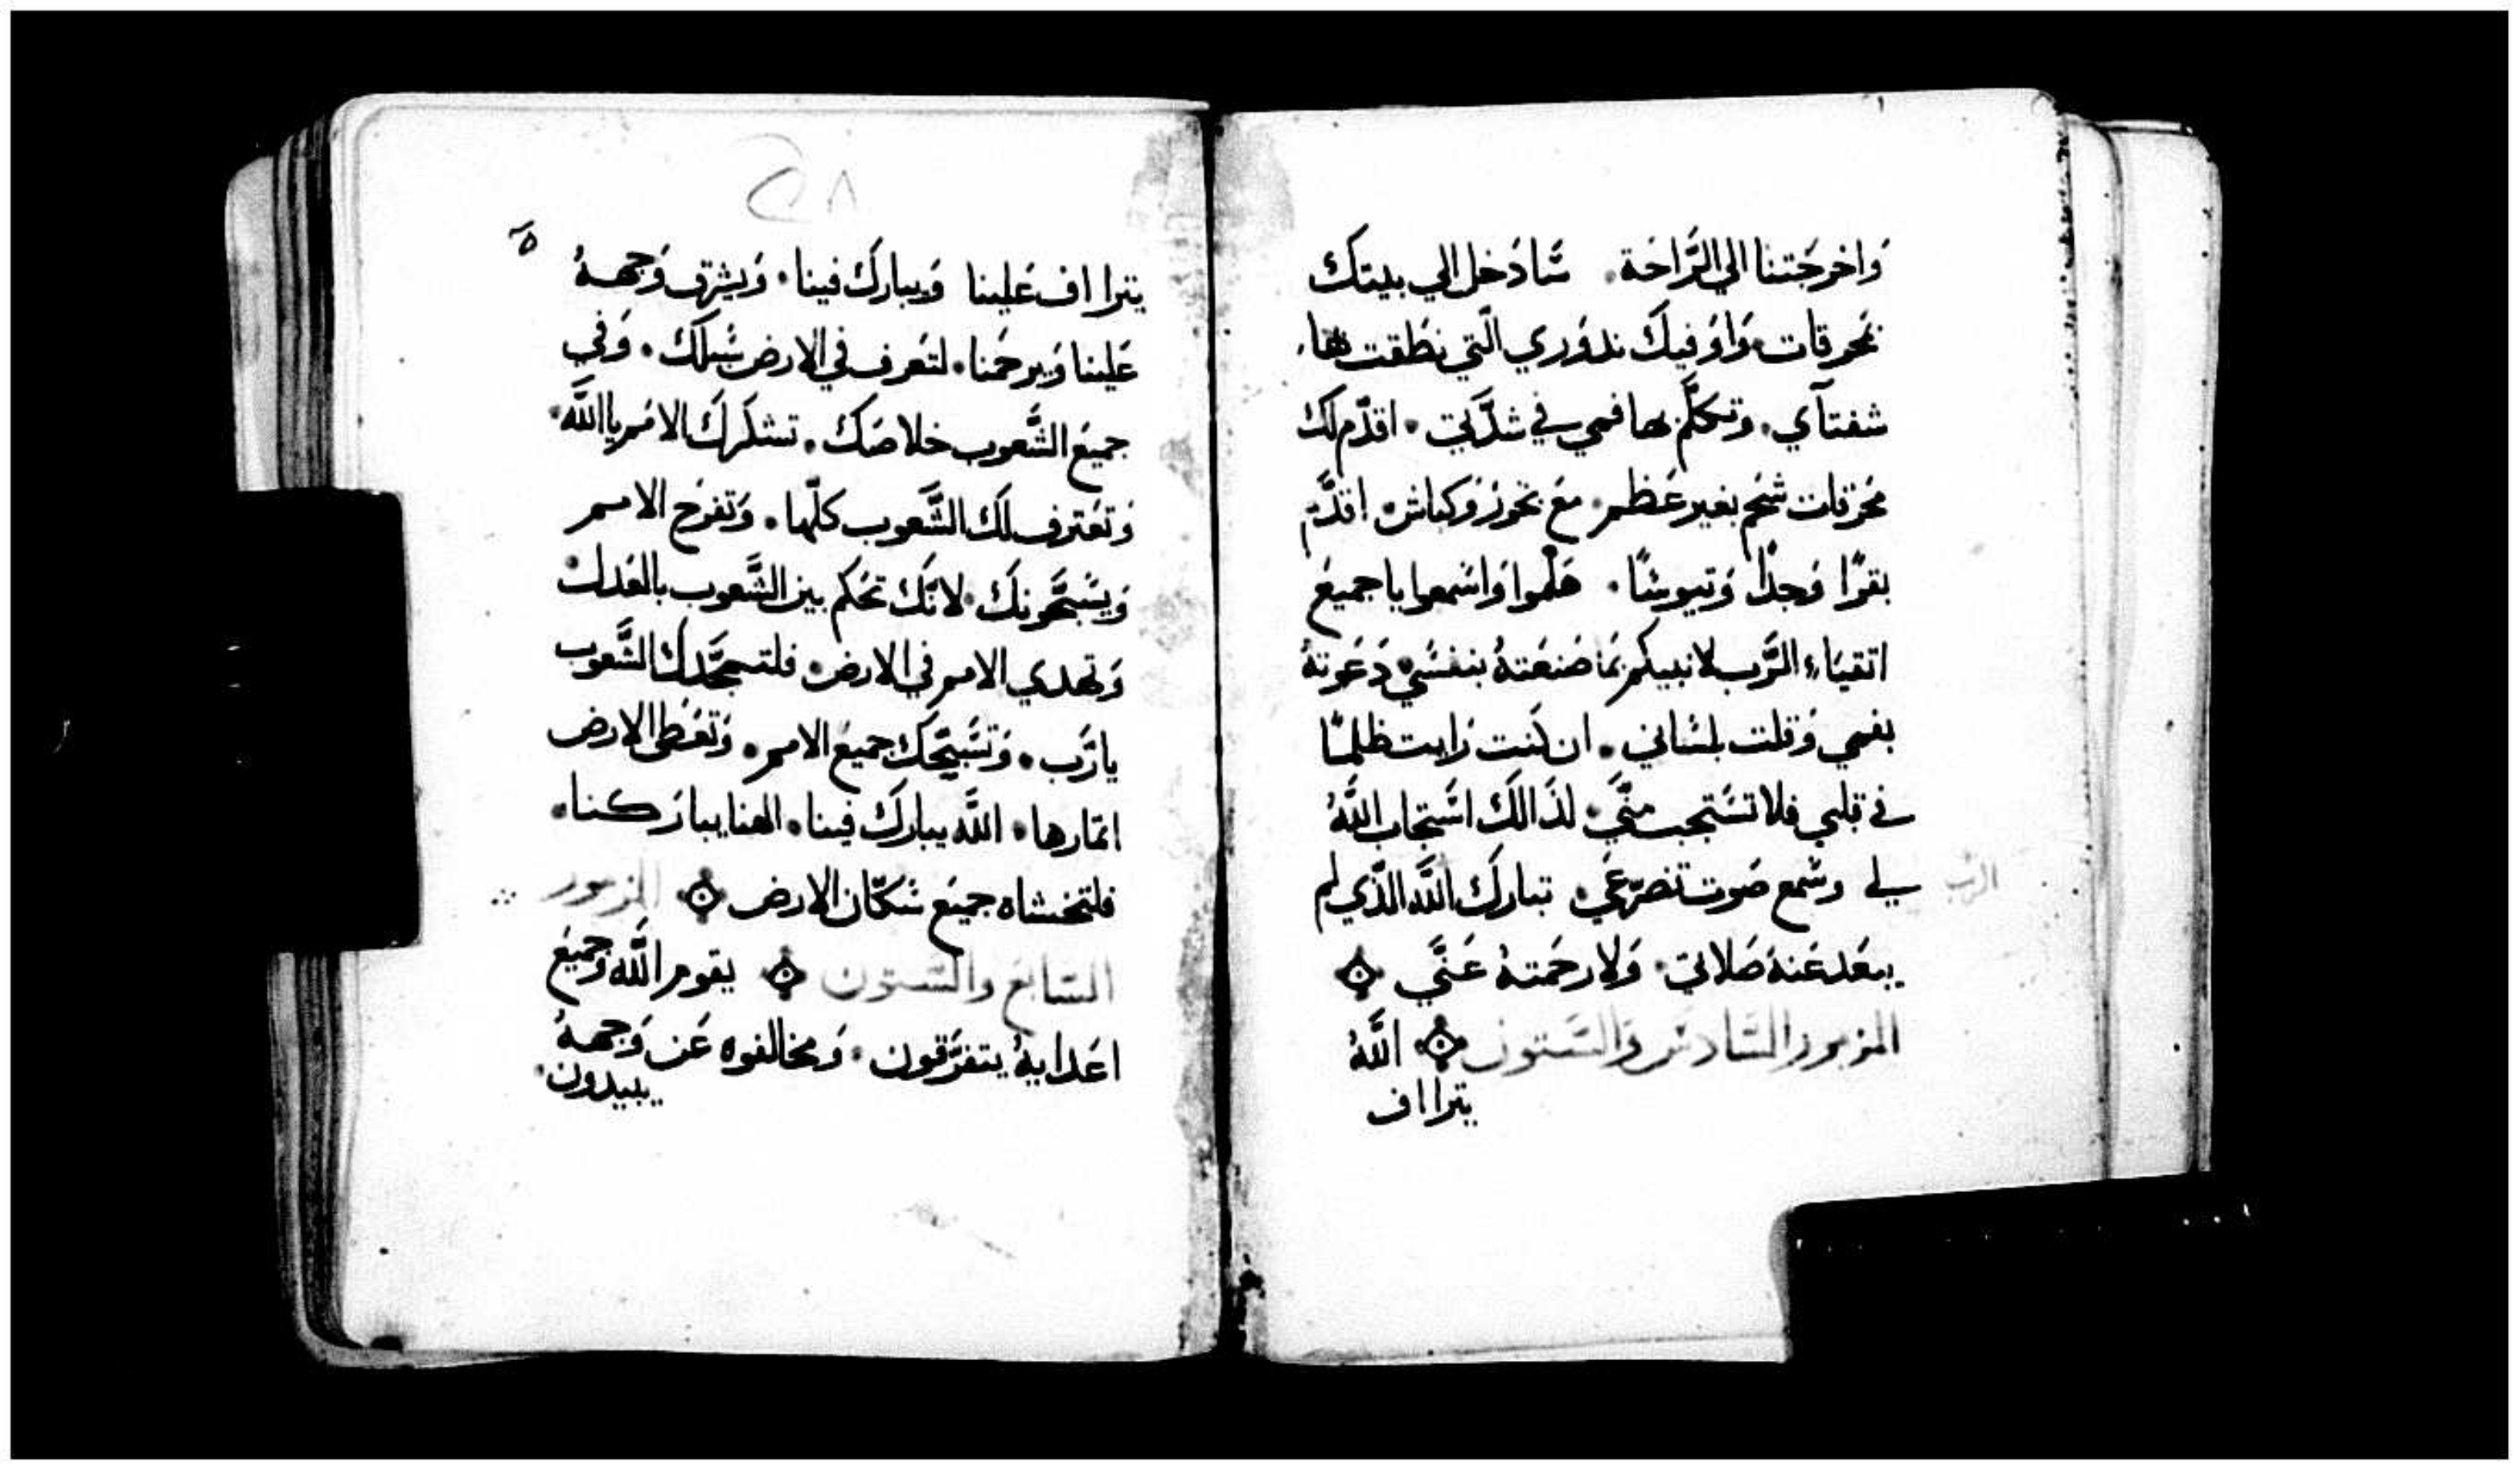 وَاخرجَتنا الي الرَّاحَة. سَّادَخل الي بيتك
بمحرقات. وَاوَفيكَ ندوَري الَّتي نطَقت بها.
شفتآي. وَتكلَّم بها فمي في شدَّتي. اقدّم لَك
محَرَقات شحَم بغير عَظم. معَ بخَورَ وَكباش. اقدَّم
بقرًا وَجدًا وَتيوسًا. هَلموا وَاسَمعوا يا جميعَ
اتقيَاء الرَّب لانبيكم بمَا صَنعَتهُ بنفسَي. دَعَوتهُ
بفمي وَقلت بلسَاني. ان كَنت رَايت ظلمًا
في قلبي فلا تسَتجيب منَّي. لذَالكَ اسَتجاب اللَّهُ
لي وسَمع صَوت تضرّعَي. تباركَ اللَّه الذَّي لم
الرّب
يبعَد عَنهُ صَلاتيَ. وَلا رحَمتهُ عَنَّي
المزمور السَّادسَ وَالسَّتون اللَّهُ
يتراا ف
٢٨
٥
يتراا ف عَلينا وَيباركَ فينا. وَيشرق وَجهـهُ
عَلينا وَيرحمَنا. لتعَرف في الارض سُبلكَ. وَفي
جميعَ الشَّعوب خلاصَك. تشكرَكَ الامَم يا اللَّه.
وَتعَترف لكَ الشَّعوب كلّها. وَتفرَح الامـم
وَيسَبَّحَونكَ. لانَّكَ تحَكم بين الشَّعوب بالعَدل
وَتهدي الامم في الارض. فلتمجَّدكَ الشَّعوب
يا رَّب. وَتسَبَّحكَ جميعَ الامم. وَتعَطي الارض
اثمارها. اللَّه يباركَ فينا. الهنا يبارَكـنا.
فلتخشاه جميعَ سَكّان الارض المزمور
السَّابعَ والسَّتون يقوم اللَّه وَجميعَ
اعَدايهُ يتفرَّقون. وَمخالفوه عَن وَجهـهُ
يبيدون.